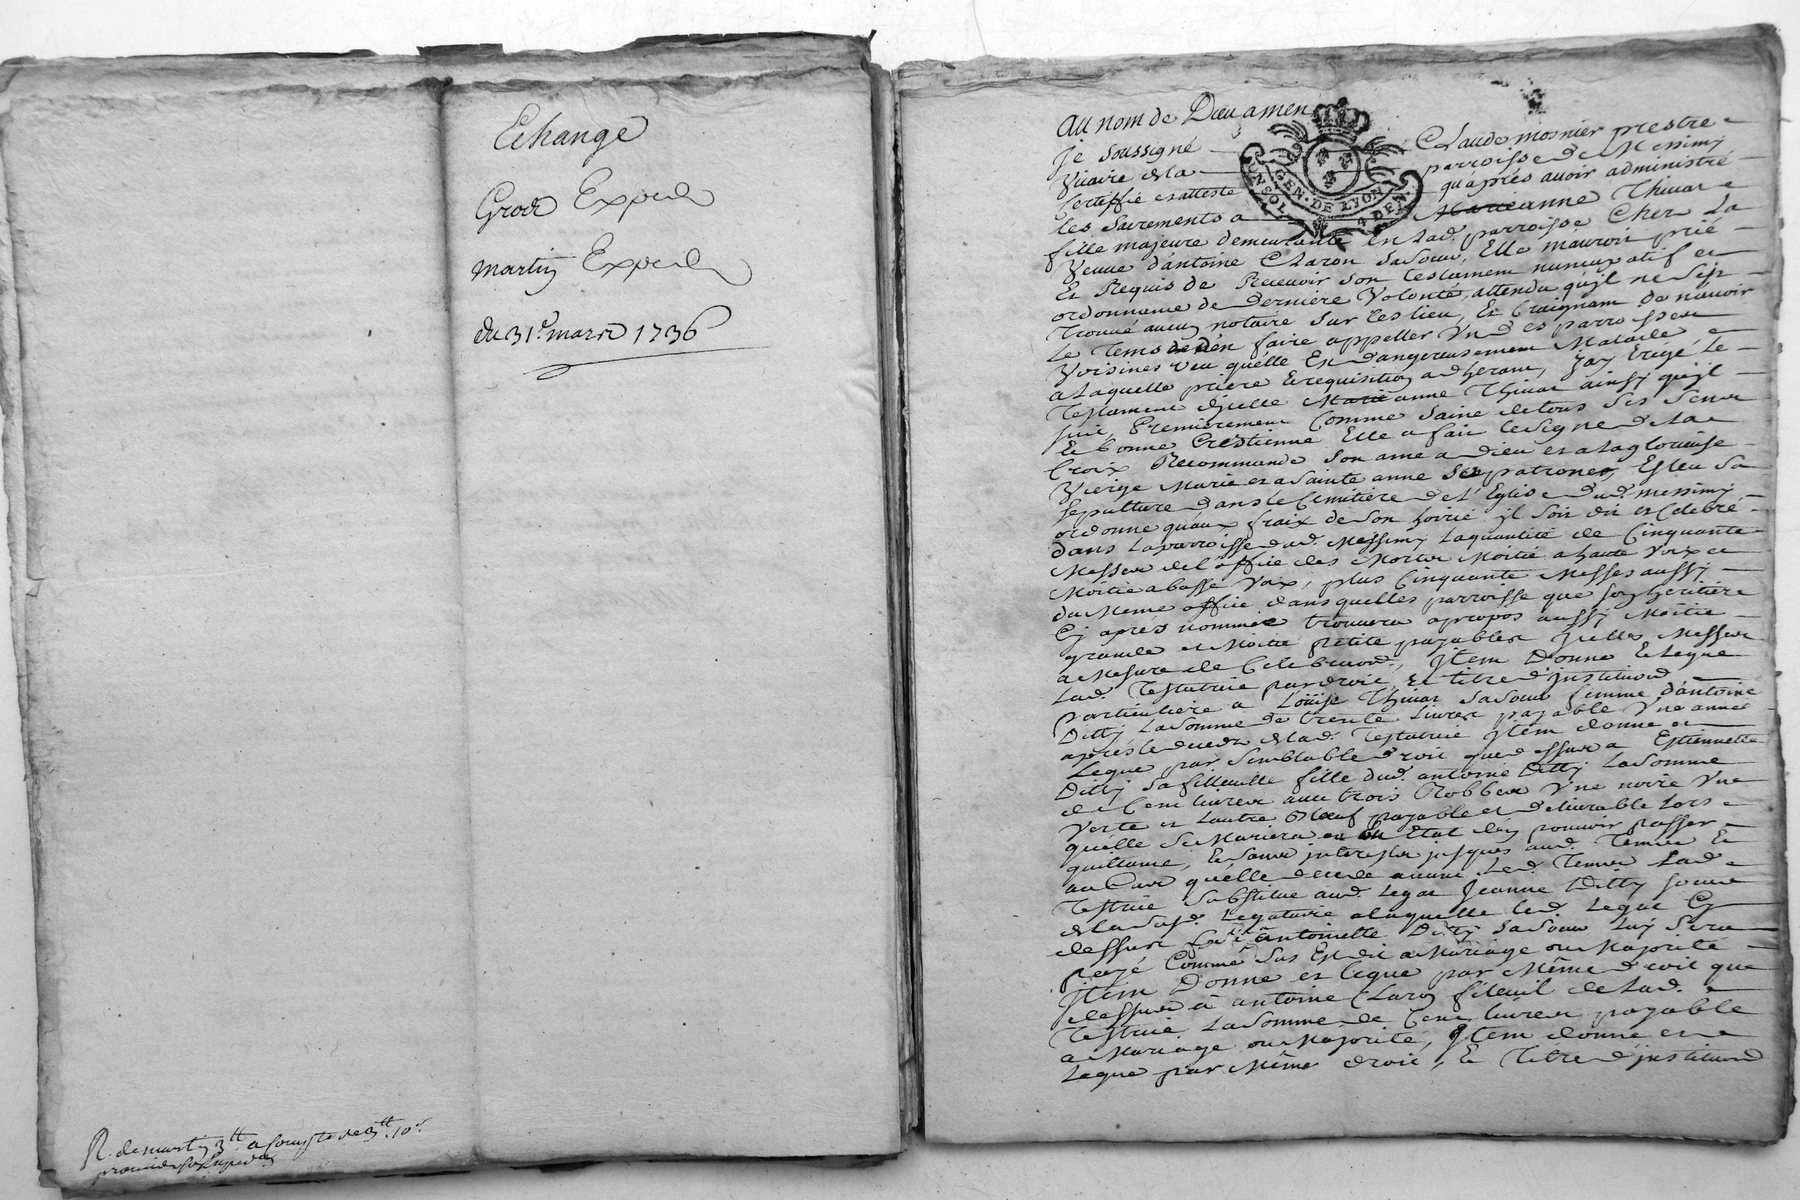 Echange
Grod Exped
Martin Exped
du 31e. mars 1736
R. de martin 3tt a Compte de 3tt. 10s.
Au nom de Dieu amen
GEN. DE LYON
UN SOL 4 DEN.
je soussigné Claude mosnier prestre
Vicaire de la parroisse de Messimy
Certiffie et atteste qu'après avoir administré
les Sacrements a Marie anne Thivar
fille majeure demeurante en lad. parroisse Cher La
Veuve d'antoine Claron sa soeur, Elle m'auroit prié
Et Requis de Recevoir son testament nuncupatif et
ordonnance de dernière Volonté, attendu qu'jl ne s'est
trouvé aucun notaire sur les lieu, Et Craignant de n'avoir
Le tems d'en faire appeller Un d es parroisses
Voisines veu qu'elle Est dangereusement Malade
a Laquelle prière Et requisition adherant, J'ay Erigé Le
Testament d'jcelle Marie anne Thivar ainsy qu'jl
suit, Premierement Comme saine de tous ses sens
Et bonne Crestienne Elle a fait le signe de la
Croix Recommandé son ame a Dieu et a la glorieuse
Vierge Marie et a Sainte anne ses patrones, Esleu sa
sepulture dans le Cimitière de l'Eglise dud. messimy
ordonne qu'aux fraix de son hoirié jl soit dit et Celebré
dans La parroisse dud. Messimy La quantité de Cinquante
Messes de l'office des Morts Moitié a haute Voix et
Moitié a basse Voix, plus Cinquante Messes aussy
du Même office dans quelles parroisse que son heritière
Cy après nommée trouvera apropos aussy Moitié
grande et Moitié Petite payables jcelles Messes
a Mesure de Celebration, Jtem Donne Et Legue
Lad. Testatrice par droit Et titre d'jnstitution
Particulière a Loüise Thivar sa soeur femme d'antoine
Ditty La somme de trente Livres payable Vne année
après le deceds de lad. Testatrice Jtem donne et
Legue par semblable droit que dessus a Estiennette
Ditty sa filleulle fille dud. antoine Ditty La somme
de Cent livres avec trois Robbes Vne noire Vne
Verte et L'autre payable et delivrable Lors
qu'elle se Mariera ou en Etat d'en pouvoir passer
quittance, Et sans jnterests jusques aud. Temps Et
au Cas qu'elle decede avant led. Temps Lad.
Testrice substitue aud. Legat Jeanne Ditty soeur
de la susd. Legatairie a laquelle led. Legat Cy
dessus antoinette Ditty sa soeur Luy sera
payé Comme sus Est dit a Mariage ou Majorité
Jtem Donne et Legue par Même droit que
dessus à antoine Claron filleuil de Lad.
Testrice La somme de Cent livres payable
a Mariage ou Majorité, Jtem donne et
Legue par Même droit, Et Titre d'jnstitution